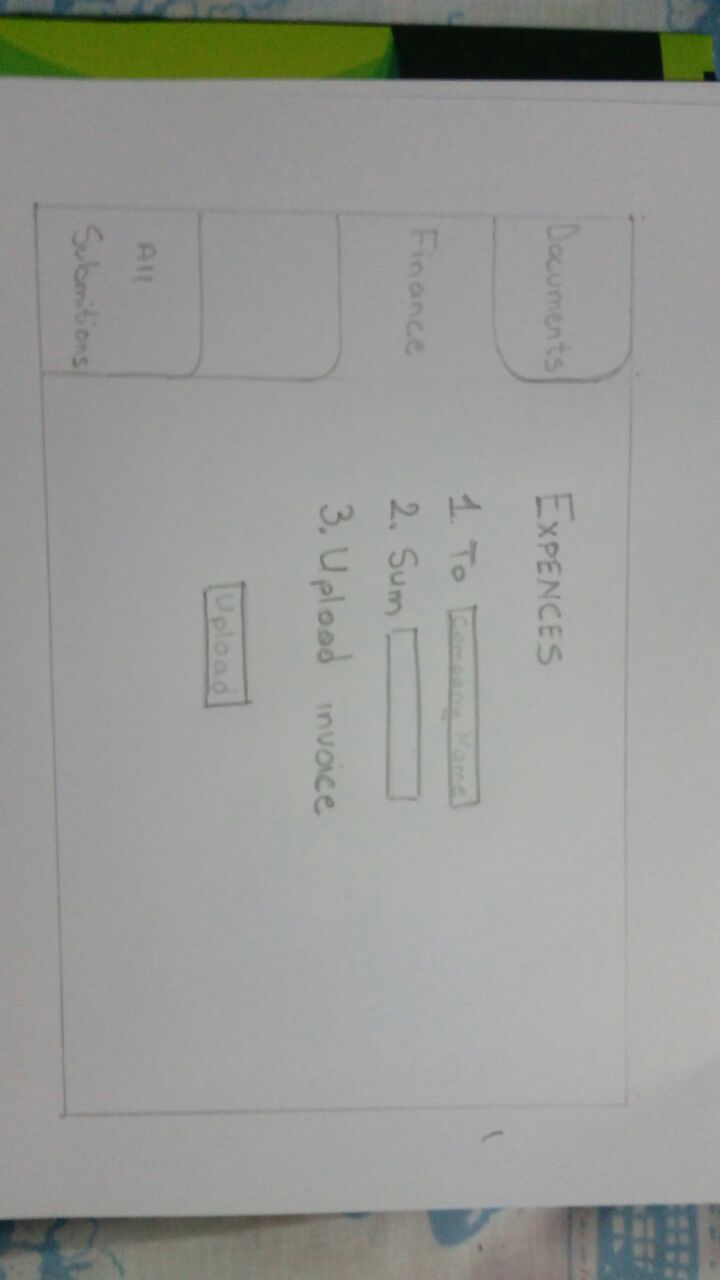 Documents
Finance
All
Submitions
EXPENCES
1. To Company Name
2. Sum
3. Upload invoice
Upload